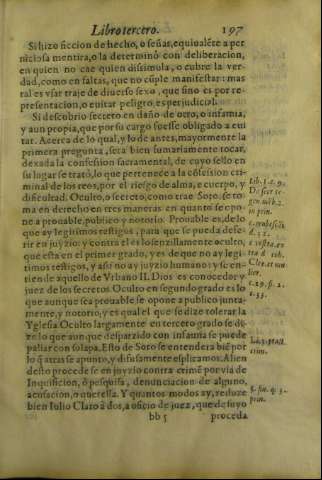 Libro tercero. 197
Si hizo ficcion de hecho, o señas, equiualẽte a per
niciosa mentira, o la determinò con deliberacion,
en quien no cae quien dissimula, o cubre la ver-
dad, como en faltas, que no cũple manifestar: mas
tal es vsar traje de diuerso sexo, que sino es por re-
presentacion, o euitar peligro, es perjudicial.
Si descubrio secreto en daño de otro, o infamia,
y aun propia, que por su cargo fuesse obligado a eui
tar. Acerca de lo qual, y lo de antes, mayormente la
primera pregunta, sera bien sumariamente tocar,
dexada la confession sacramental, de cuyo sello en
su lugar se tratò, lo que pertenece a la cõfession cri-
minal de los reos, por el riesgo de alma, e cuerpo, y
dificultad. Oculto, o secreto, como trae Soto, se to-
ma en derecho en tres maneras en quanto se opo-
ne a prouable, publico y notorio. Prouable es, de lo
que ay legitimos testigos, para que se pueda defe-
rir en juyzio: y contra el es lo senzillamente oculto,
que esta en el primer grado, y es de que no ay legi-
timos testigos, y assi no ay juyzio humano: y se en-
tien de aquello de Vrbano II. Dios es conocedor y
juez de los secretos Oculto en segundo grado es lo
que aunque sea prouable se opone a publico junta-
mente, y notorio, y es qual el que se dize tolerar la
Yglesia Oculto largamente en tercero grado se di-
ze lo que aunque desparzido con infamia se puede
paliar con solapa. Esto de Soto se entendera biẽ por
lo q̃ atras se apunto, y difusamente esplicamos: Alien
desto procede se en juyzio contra crimẽ por via de
Inquisicion, ò pesquisa, denunciacion de alguno,
acusacion, o querella. Y quantos modos ay, reduze
bien Iulio Claro à dos, a oficio de juez, que de suyo
bb 5 proceda
Lib. 5. q. 9.
in prin.
d. 32.
c. 29. p. 2.
c. 33.
prin.